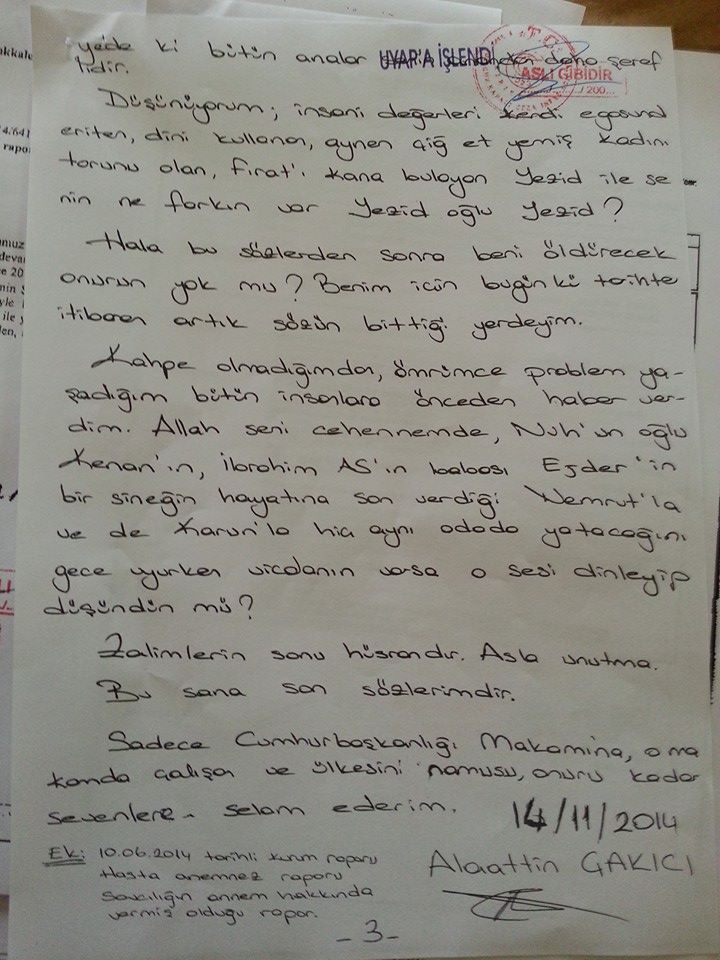 yede ki bütün analar UYAP'A İŞLENDİ daha şeref
lidir.
ASLI GİBİDİR
.../.../200...
Düşünüyorum; insani değerleri kendi egosund
eriten, dini kullanan, aynen çiğ et yemiş kadını
torunu olan, Fırat'ı kana bulayan Yezid ile se
nin ne farkın var Yezid oğlu Yezid?
Hala bu sözlerden sonra beni öldürecek
onurun yok mu? Benim için bugünkü tarihte
itibaren artık sözün bittiği yerdeyim.
Kahpe olmadığımdan, ömrümce problem ya-
şadığım bütün insanlara önceden haber ver-
dim. Allah seni cehennemde, Nuh'un oğlu
Kenan'ın, İbrahim AS'ın babası Ezder'in
bir sineğin hayatına son verdiği Nemrut'la
ve de Karun'la hia aynı odada yatacağını
gece uyurken vicdanın varsa o sesi dinleyip
düşündün mü?
Zalimlerin sonu hüsrandır. Asla unutma.
Bu sana son sözlerimdir.
Sadece Cumhurbaşkanlığı Makamına, o ma
kamda çalışan ve ülkesini namusu, onuru kadar
sevenlere selam ederim.
14/11/2014
Alaattin ÇAKICI
Ek: 10.06.2014 tarihli kurum raporu
Hasta anemnez raporu
Savcılığın annem hakkında
vermiş olduğu rapor.
-3-